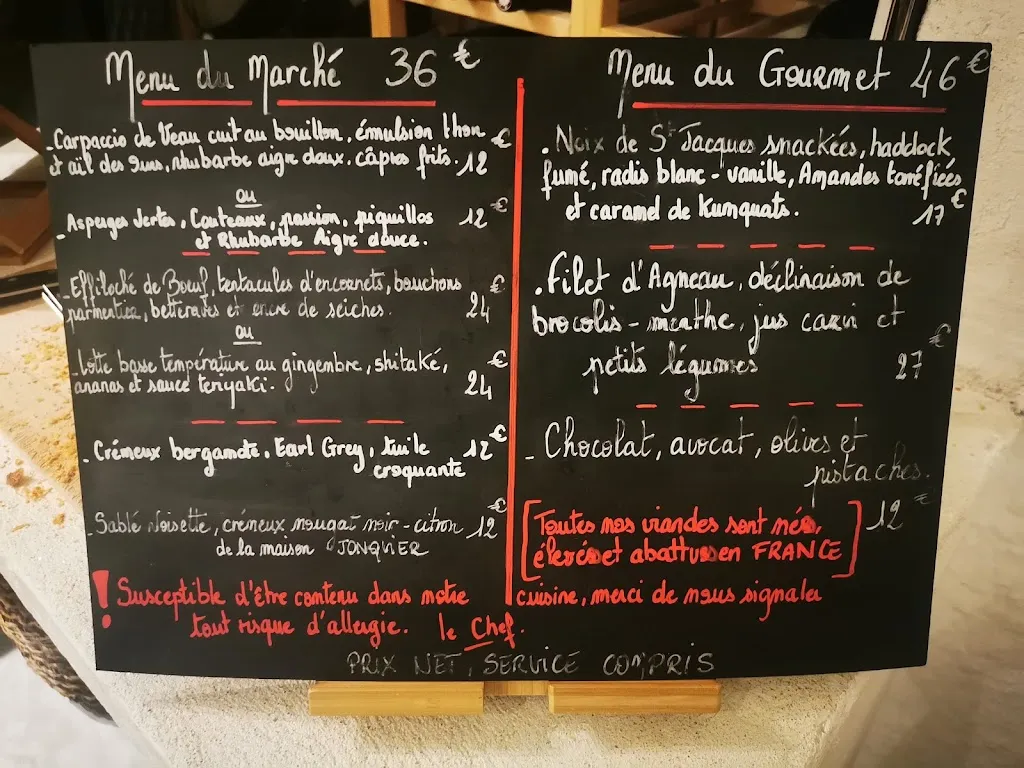 Menu du Marché 36 €
- Carpaccio de Veau cuit au bouillon, émulsion thon
et ail des ours, rhubarbe aigre doux, câpres frits. 12 €
ou
- Asperges Vertes, Couteaux, passion, piquillos 12 €
et Rhubarbe Aigre douce.
- Effiloché de Boeuf, tentacules d'encornets, bouchons
parmentier, betteraves et encre de seiches. 24 €
ou
- Lotte basse température au gingembre, shitaké,
ananas et sauce teriyaki. 24 €
- Crémeux bergamote, Earl Grey, tuile 12 €
croquante
- Sablé Noisette, crémeux nougat noir - citron 12 €
de la maison JONQUIER
Menu du Gourmet 46 €
. Noix de St Jacques snackées, haddock
fumé, radis blanc - vanille, Amandes torréfiées
et caramel de Kumquats. 17 €
. Filet d'Agneau, déclinaison de
brocolis - menthe, jus carvi et
petits légumes 27 €
- Chocolat, avocat, olives et
pistaches. 12 €
[Toutes nos viandes sont nées,
élevées et abattues en FRANCE]
! Susceptible d'être contenu dans notre cuisine, merci de nous signaler
tout risque d'allergie. le Chef.
PRIX NET, SERVICE COMPRIS